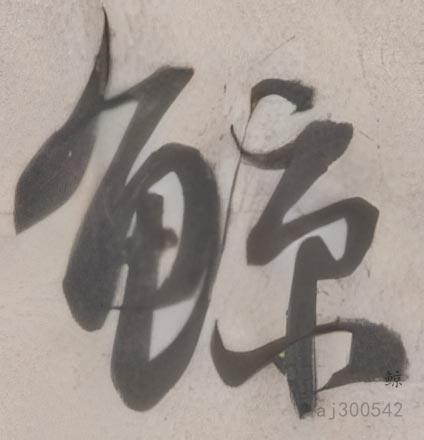 鲸
鲸
aj300542